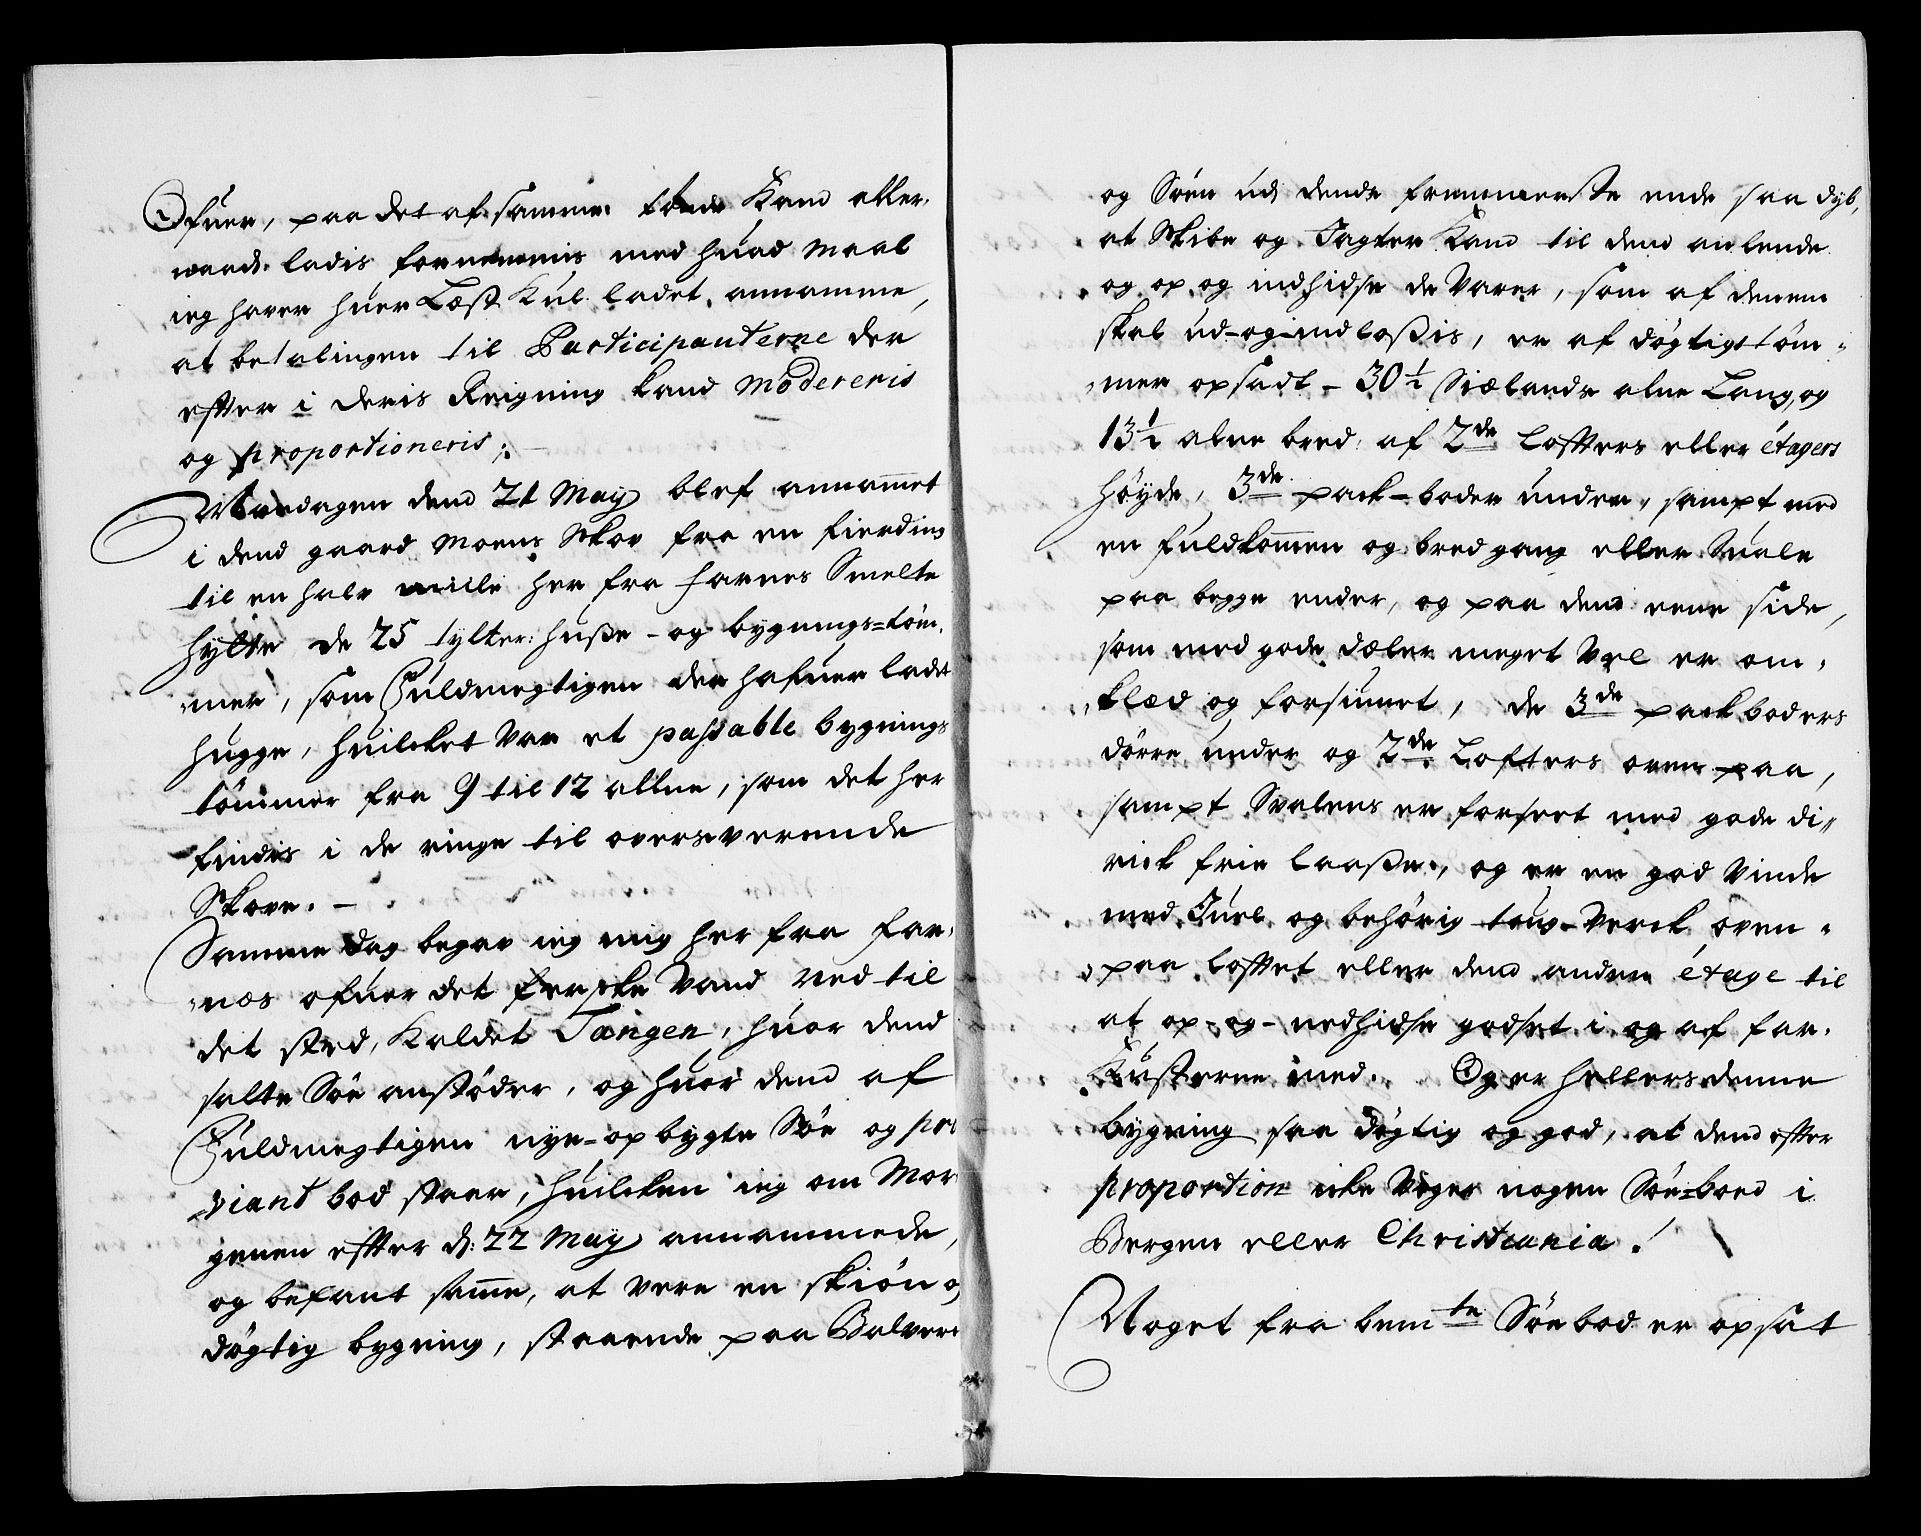 Ofuer, paa det af samme tønde Kand aller,
waard. ladis fornemmis med huad Maal
ieg haver huer Læst Kul ladet annamme,
at betalingen til Participanterne der
efter i deris Reigning kand Modereris
og proportioneris;
Mandagen dend 21 May blef annam̅et
i dend gaard Moens Skov fra en fierding
til en halv mille her fra Farnes Smelte
hytte de 25 tylter: huuße- og bygnings=töm,
mer, som Fuldmegtigen der hafuer ladet
hugge, huilcket var et passable bygnings
tömmer fra 9 til 12 allne, som det her
findis i de ringe til oversverende
Skove. –
Samme dag begav ieg mig her fra Far,
næs ofuer det ferske Vand ned til
det sted, Kaldet Tangen, huor dend
salte Söe anstöder, og huor dend af
Fuldmegtigen nye-opbygte Söe og pro
viant bod staar, huilcken ieg om Mor
genen efter d: 22 May annammede,
og befant sam̅e, at vere en skiön og
dögtig bygning, staaende paa Bolverk
og Söen ud dends fremmerste ende saa dyb,
at Skibe og Jagter Kand til dend anlende
og op og indhidse de Varer, som af dennem
skal ud-og-indloßis, er af dögtigt töm,
mer opsadt - 30½ Siælands alne Lang, og
13½ alne bred, af 2de Lofters eller étagers
höyde, 3de pack-boder under, sampt med
en fuldkom̅en og bred gang eller Suale
paa begge ender, og paa dend eene side,
som med gode dæler meget vel er om,
klæd og forsiunet, de 3de packboders
dörre under og 2de Lofters oven paa,
sampt Svalens er forseet med gode di,,
rick frie laaße, og er en god Vinde
med Juel og behörig toug-Verck oven,
paa loftet eller dend anden étage til
at op-og-nedhidse godset i og af far,
Kusterne med. Og er hellers denne
bygning saa dögtig og god, at dend efter
proportion icke Viger nogen Söe=boed i
Bergen eller Christiania.
Noget fra bemte Söebod er opsat